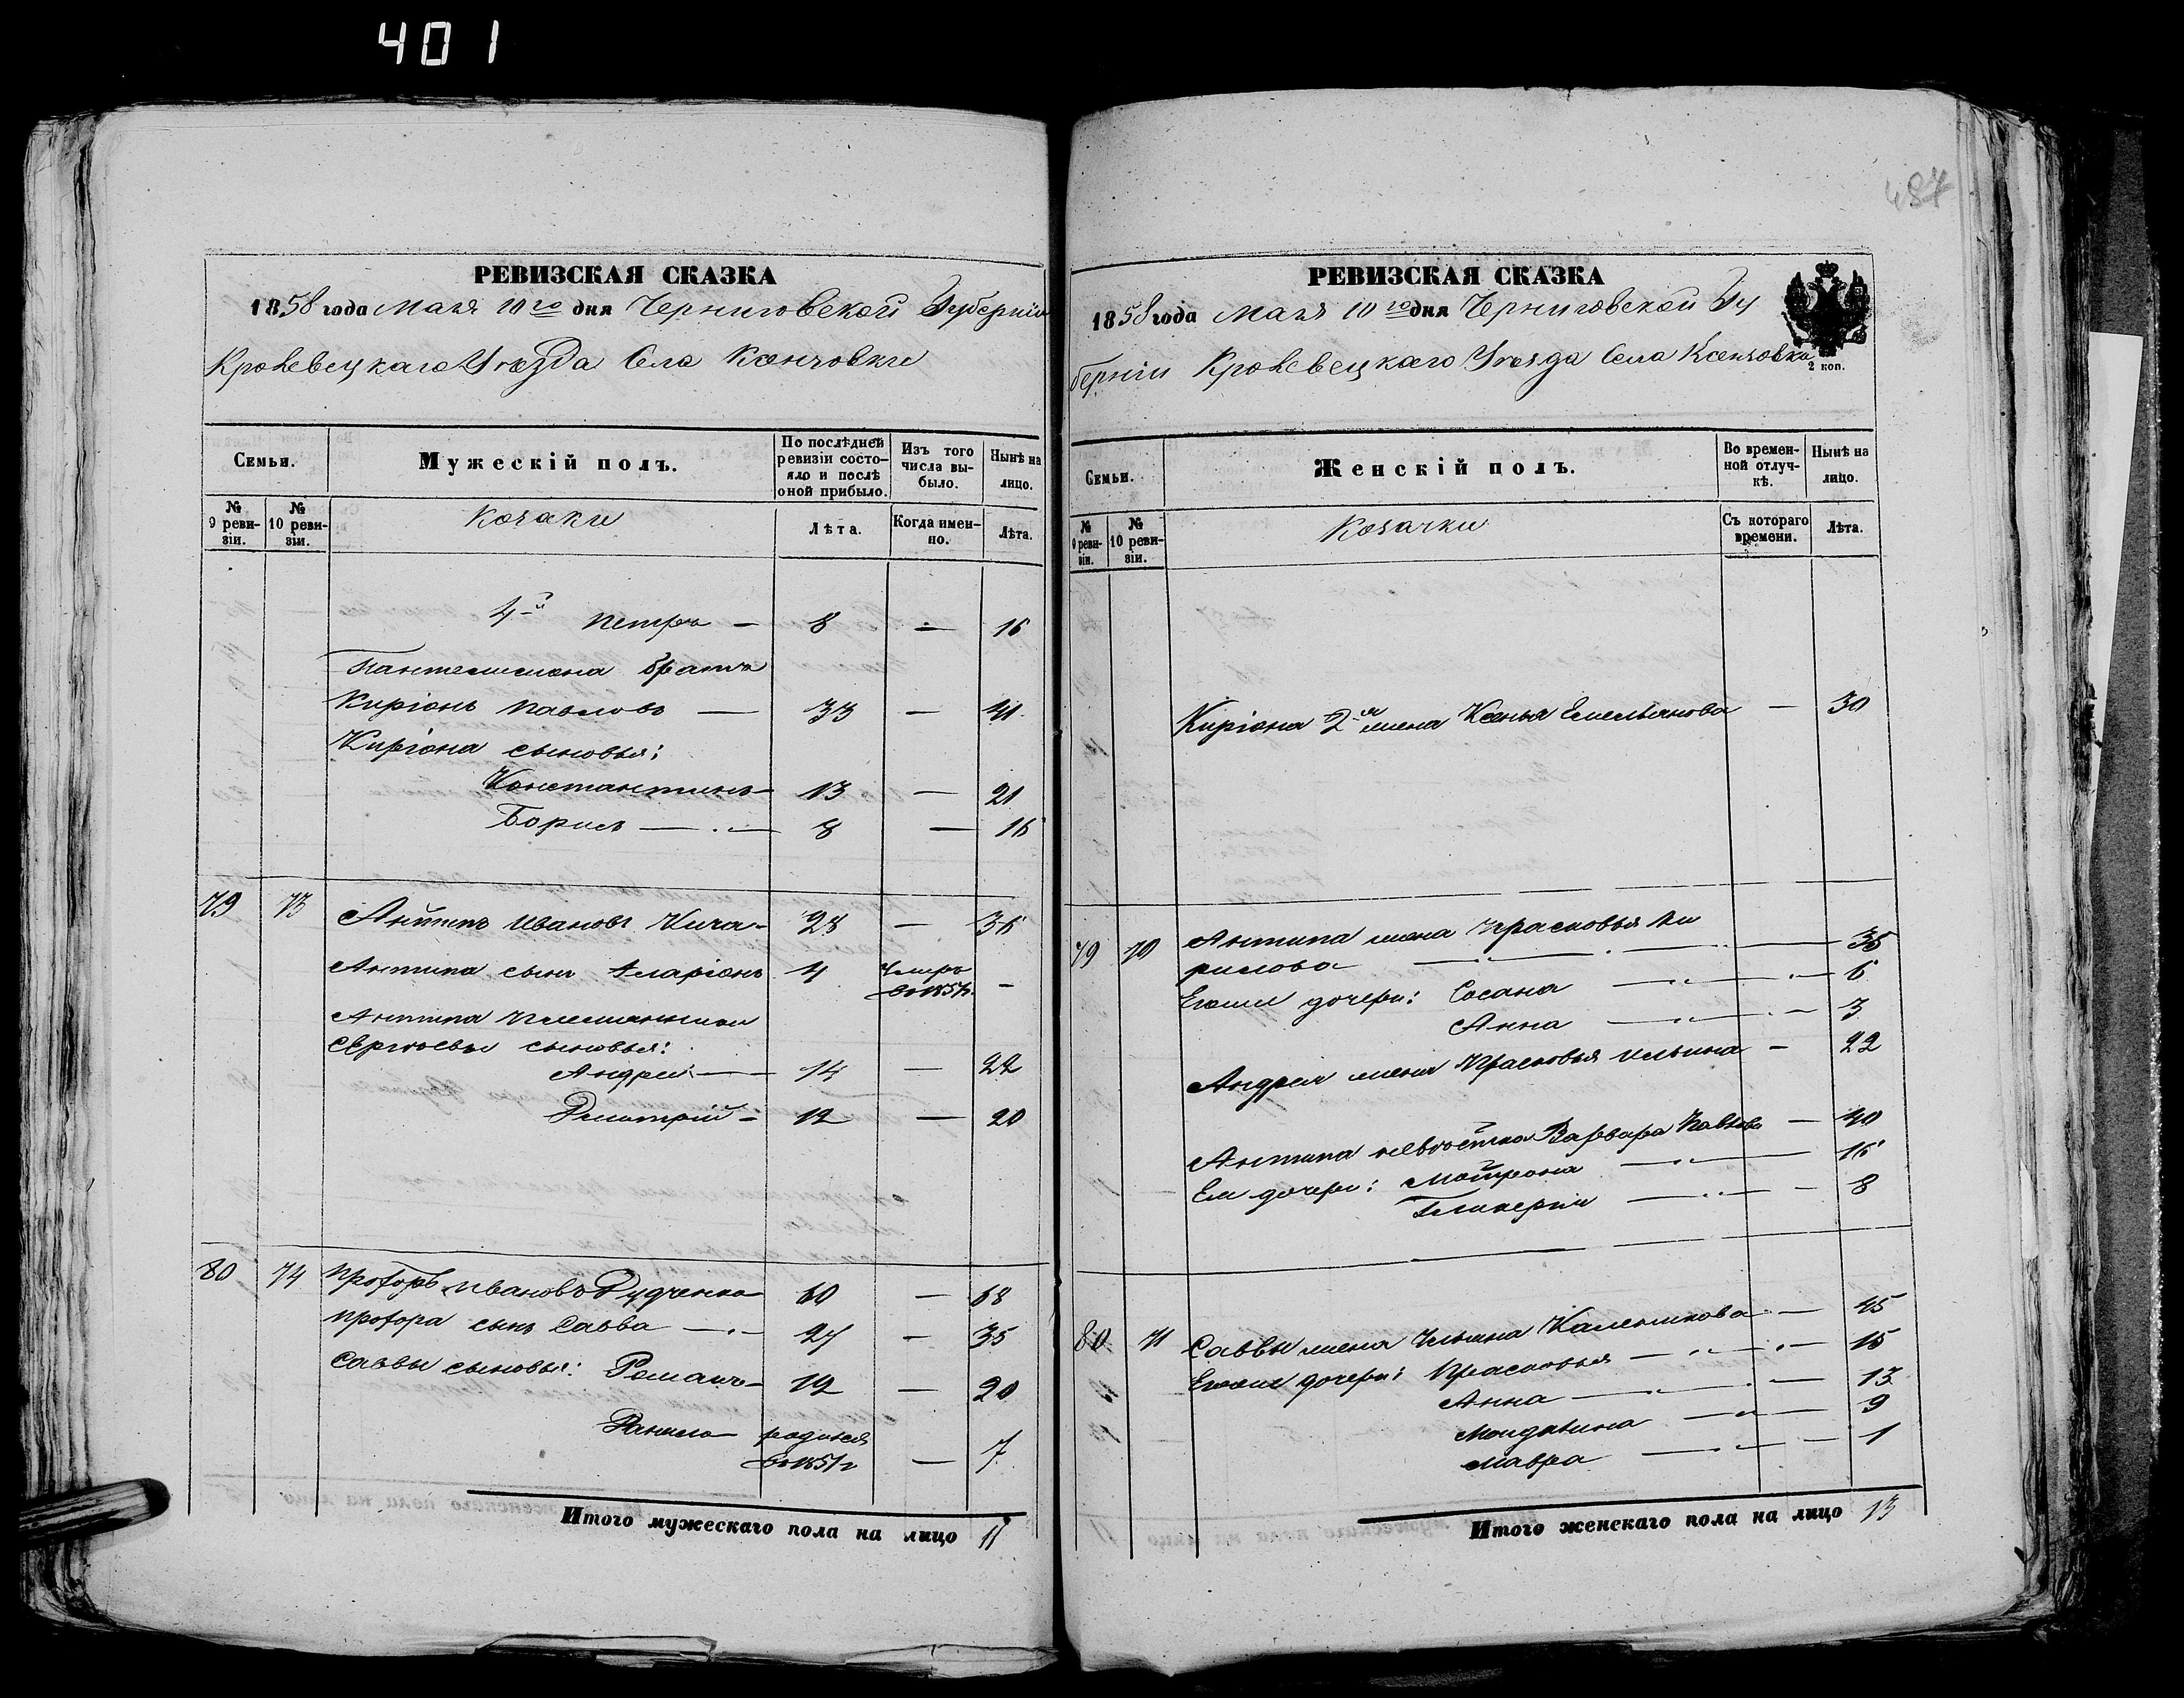 401
487
РЕВИЗСКАЯ СКАЗКА
1858 года Мая 10го дня Черниговской Губерніи
Кролевецкаго Уѣзда Села
Семьи.
Мужескій полъ.
По послѣдней ревизіи состояло и послѣ оной прибыло.
Изъ того числа выбыло.
Нынѣ на лицо.
№ 9 ревизіи.
№ 10 ревизіи.
Козаки
Лѣта.
Когда именно.
Лѣта.
4й Петръ — 8 — 16
Пантелимона братъ
Киріонъ Павловъ — 33 — 41
Киріона сыновья:
Константинъ — 13 — 21
Борисъ — 8 — 16
79 73 Антипъ Ивановъ 28 — 36
Антипа сынъ Иларіонъ 4 умеръ —
Антипа племянники
Сергѣевы сыновья:
Андрей — 14 — 22
Дмитрій — 12 — 20
80 74 Прохоръ Ивановъ Рудченко 60 — 68
Прохора сынъ Савва — 27 — 35
Саввы сыновья: Романъ — 12 — 20
Данило родился
въ 1851г — 7
Итого мужескаго пола на лицо 11
РЕВИЗСКАЯ СКАЗКА
1858 года Мая 10го дня Черниговской Гу
берніи Кролевецкаго Уѣзда Села
2 коп.
Семьи.
Женскій полъ.
Во временной отлучкѣ.
Нынѣ на лицо.
№ 9 ревизіи.
№ 10 ревизіи.
Козачки
Съ котораго времени.
Лѣта.
Киріона 2я жена Ксенья Емельянова — 30
79 70 Антипа жена Прасковья Ки
рилова — 35
Егожъ дочери: Сосана — 6
Анна — 3
Андрея жена Прасковья Ильина — 22
Антипа невѣстка Варвара Павлова — 40
Ея дочери: Мотрона — 16
Гликерія — 8
80 71 Саввы жена Ульяна — 45
Егожъ дочери: Прасковья — 15
Анна — 13
Магдалина — 9
Мавра — 1
Итого женскаго пола на лицо 13